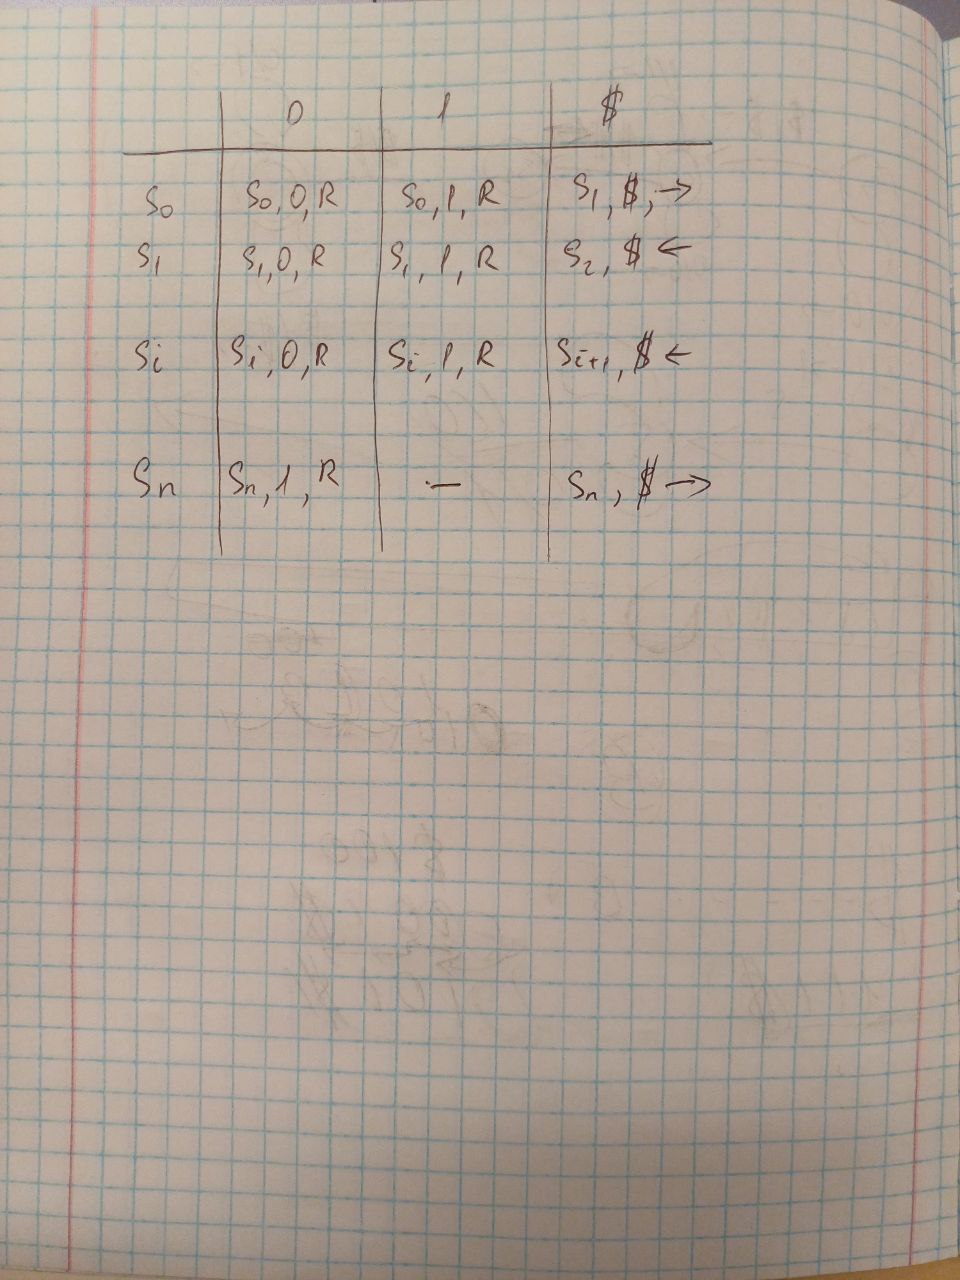 0 1 $
S₀ S₀, 0, R S₀, 1, R S₁, $, →
S₁ S₁, 0, R S₁, 1, R S₂, $ ←
Sᵢ Sᵢ, 0, R Sᵢ, 1, R Sᵢ₊₁, $ ←
Sₙ Sₙ, 1, R — Sₙ, $ →